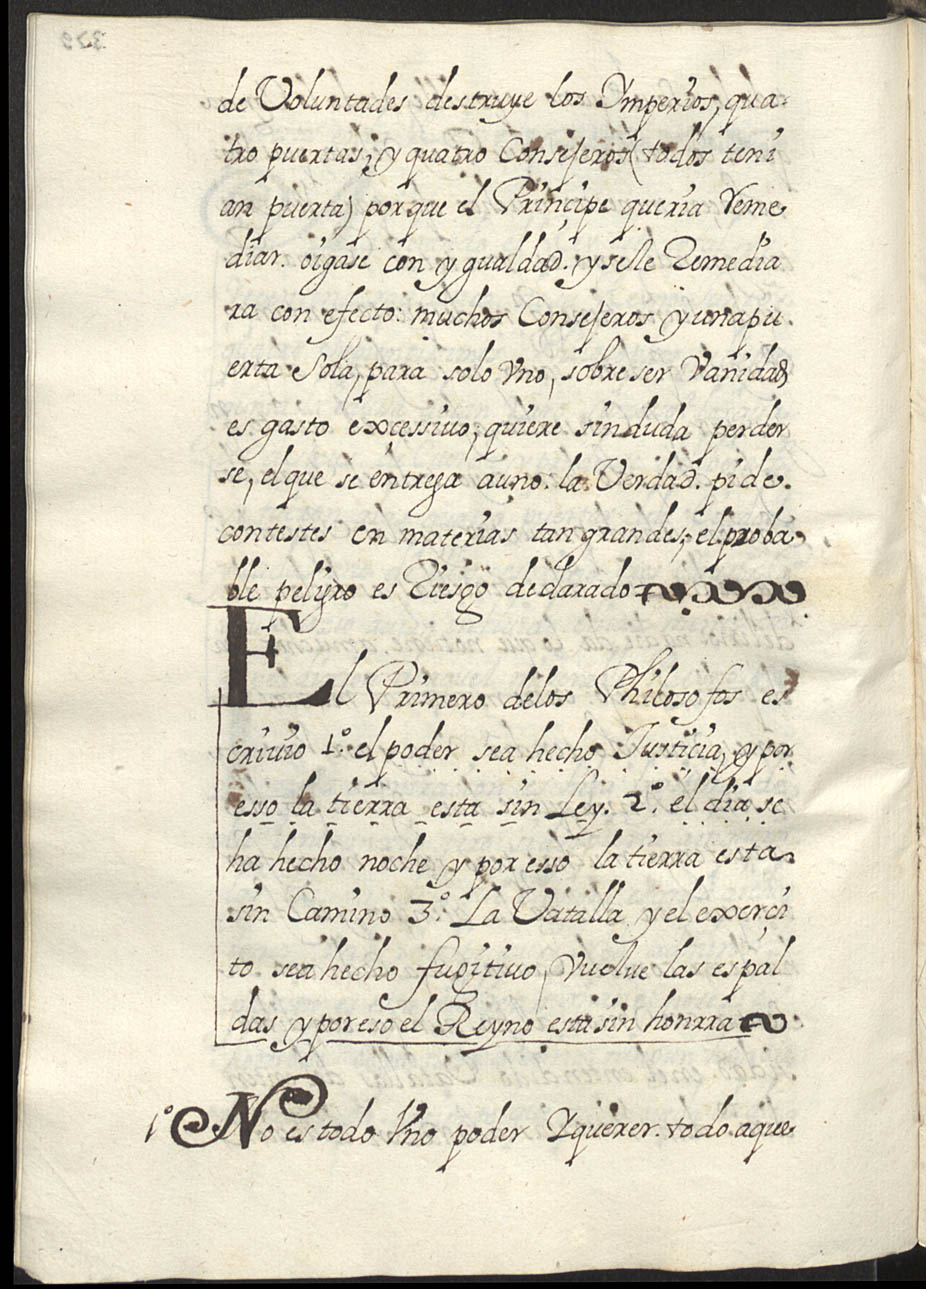 de Voluntades destruye los Ymperios, qua-
tro puertas, y quatro Consejeros (todos teni
an puerta) porque el Principe queria Reme
diar. oigase con ygualdad. y se le Remedia
ra con efecto: muchos Consejeros y una pu
erta sola, para solo Vno, sobre ser Vanidad
es gasto excessivo, quiere sin duda perder
se, el que se entrega a uno: la Verdad. pide.
contestes en materias tan grandes, el proba
ble peligro es Riesgo declarado
El Primero de los Philosofos es
crivio 1º. el poder sea hecho Justicia, y por
esso la tierra esta sin Ley. 2º. el dia se
ha hecho noche y por esso la tierra esta
sin Camino 3º. La Vatalla y el exerci
to sea hecho fugitivo, Vuelve las espal
das y por eso el Reyno esta sin honrra
1º No es todo Vno poder Y querer. todo aque